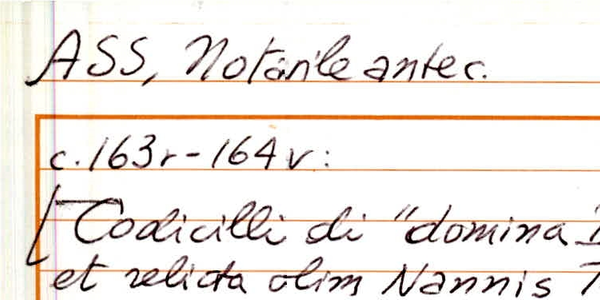 ASS, Notarile antec.
c. 163r-164v:
[Codicilli di "domina
et relicta olim Nannis